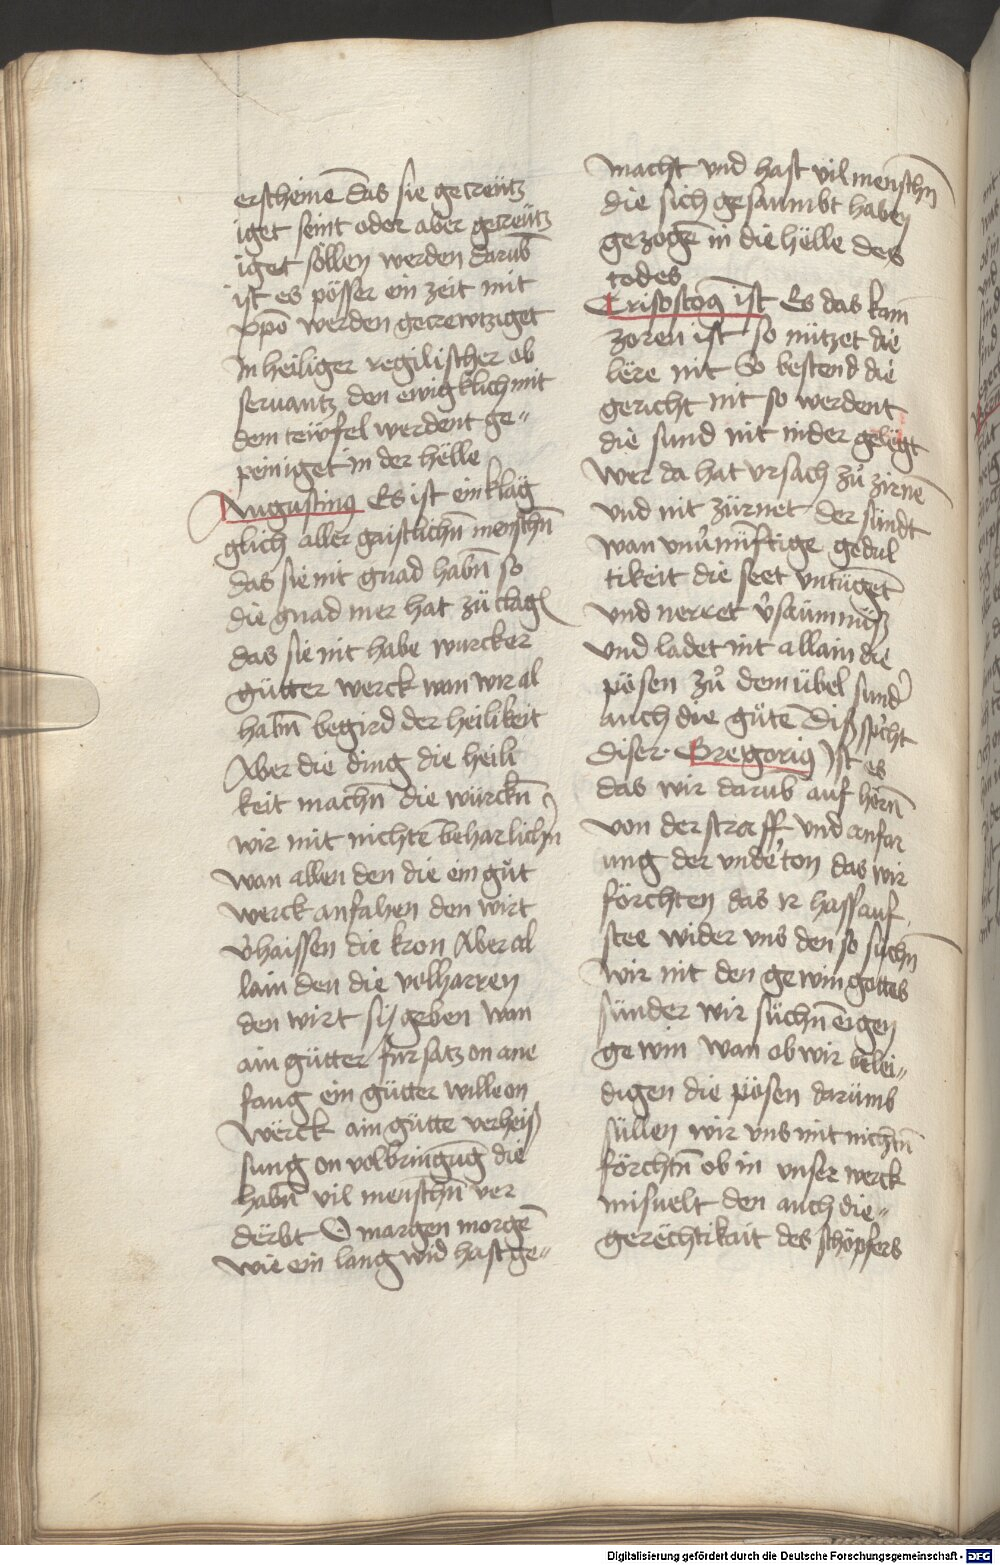 erscheinē das sie gecreütz
iget seint oder aber gecreütz
iget söllen werden darūb
ist es pösser ein zeit mit
xp̄o werden gecrewtziget
In heiliger regilischer ob
servantz den ewigklich mit
dem teẅfel werdent ge„
peiniget in der hëlle
Augustinꝰ Es ist ein kläg
glich aller gaistlichn̄ menschn̄
das sie nit gnad habn̄ so
die gnad mer hat zü clagē
das sie nit habe wurcker
gütter werck wan wir al
habn̄ begird der heilikeit
Aber die ding die heili
keit machn̄ die würckn̄
wir mit nichtē beharlichn̄
wan allen den die ein gůt
werck anfahen den wirt
v̓haissen die kron Aber al
lain den die volharren
den wirt sÿ geben wan
ain gütter fursatz on ane
fang ein gütter wille on
wërck ain gütte verheiß
sung on volbringūg die
habn̄ vil menschn̄ ver
dërbt O margen morgē
wie ein lang wid hast ge„
macht vnd hast vil menschn̄
die sich gesaumbt haben
gezogē in die hëlle des
todes
Crisostoꝰ ist Es das kain
zoren ist so nützet die
lëre nit So bestend die
gericht nit so werdent
die sund nit nider gelegt
Wer da hat vrsach zů zirnē
vnd nit zürnet der sündt
wan vnůnüftige gedul
tikeit die seet vntügēt
vnd nerret v̓saümnüß
vnd ladet nit allain die
pösen zů dem übel sund̓
auch die gütē Diß sp̓cht
diser· Gregoriꝰ Ist es
das wir darūb auf hörn̄
von der straff vnd anfar
ung der vnde̓ton das wir
förchten das ir hass auf
stee wider vns den so suchn̄
wir nit den gewin gottes
sünder wir süchn̄ eigen
gewin wan ob wir belei„
digen die pösen darümb
süllen wir vns mit nichtn̄
förchtn̄ ob in vnser werck
misvelt den auch die„
gerëchtikait des schöpfers
Digitalisierung gefördert durch die Deutsche Forschungsgemeinschaft - DFG